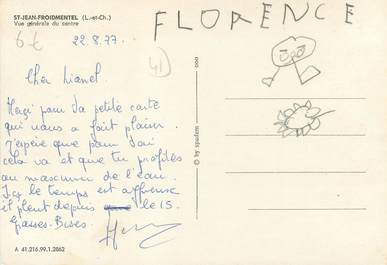 ST-JEAN-FROIDMENTEL (L.-et-Ch.)
Vue générale du centre
6€
22.8.77.
41
Cher Lionel
Merci pour ta petite carte
qui nous a fait plaisir.
J'espère que pour toi
cela va et que tu profites
au maximum de l'eau.
Ici le temps est affreux
il pleut depuis le 15.
Grosses Bises.
A 41.216.99.1.2062
© by spadem
FLORENCE